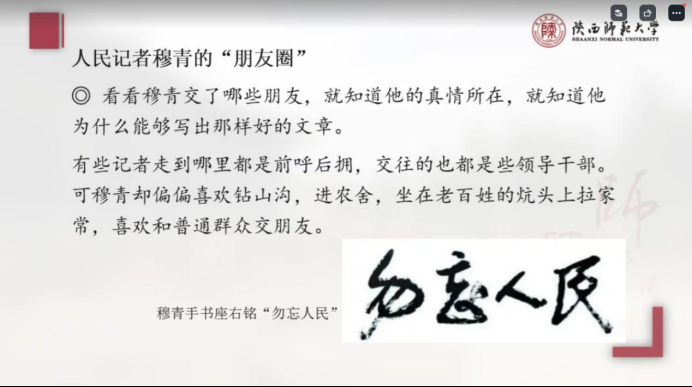 陕西师范大学
SHAANXI NORMAL UNIVERSITY
人民记者穆青的“朋友圈”
◎ 看看穆青交了哪些朋友，就知道他的真情所在，就知道他
为什么能够写出那样好的文章。
有些记者走到哪里都是前呼后拥，交往的也都是些领导干部。
可穆青却偏偏喜欢钻山沟，进农舍，坐在老百姓的炕头上拉家
常，喜欢和普通群众交朋友。
勿忘人民
穆青手书座右铭“勿忘人民”